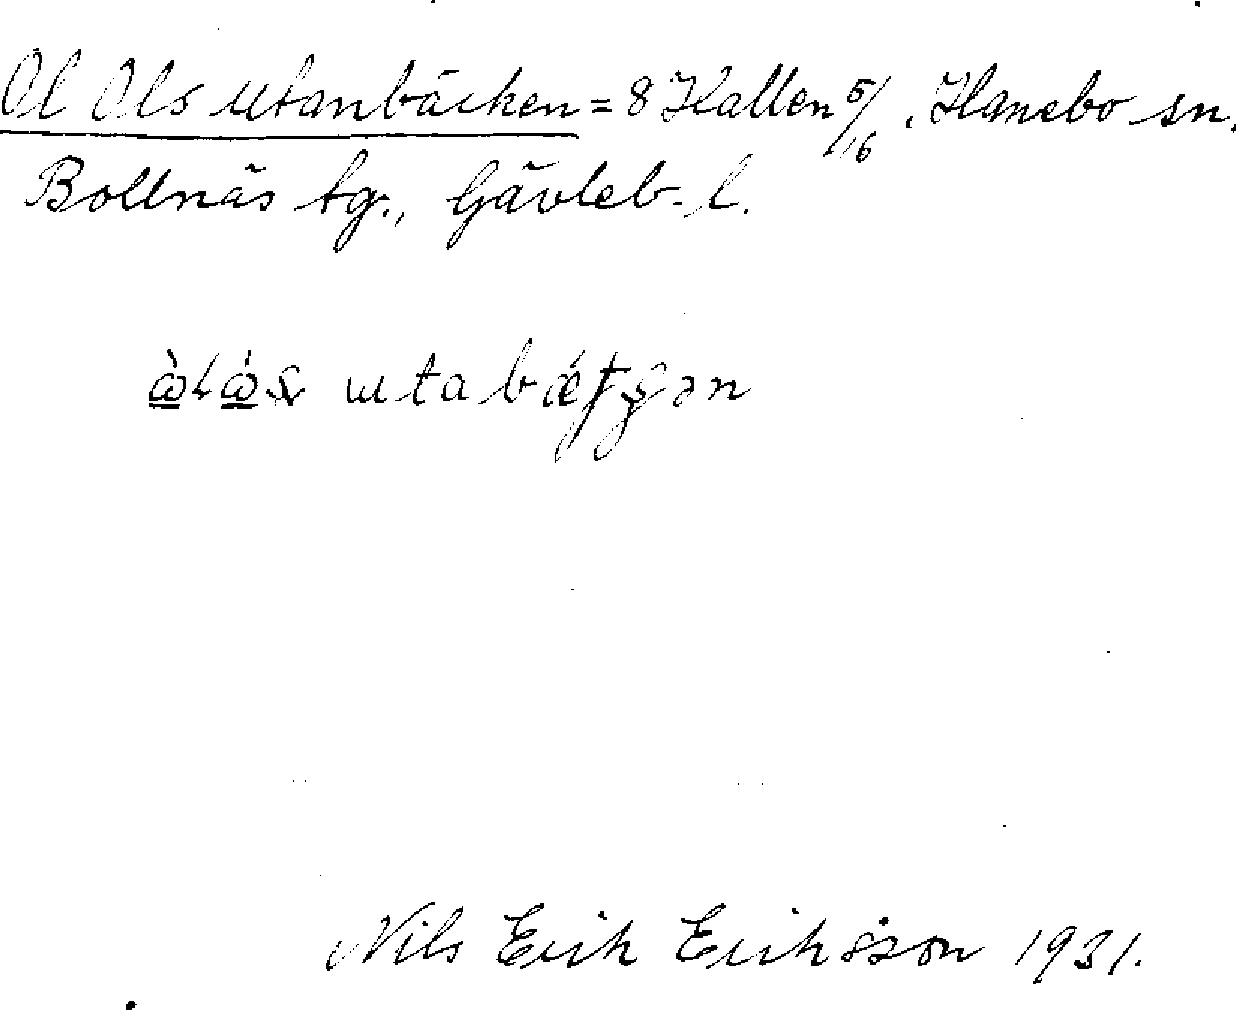 Ol Ols utanbäcken = 8 Kallen 5/16. Hanebo sn.
Bollnäs tg., Gävleb. l.
Nils Erik Eriksson 1931.